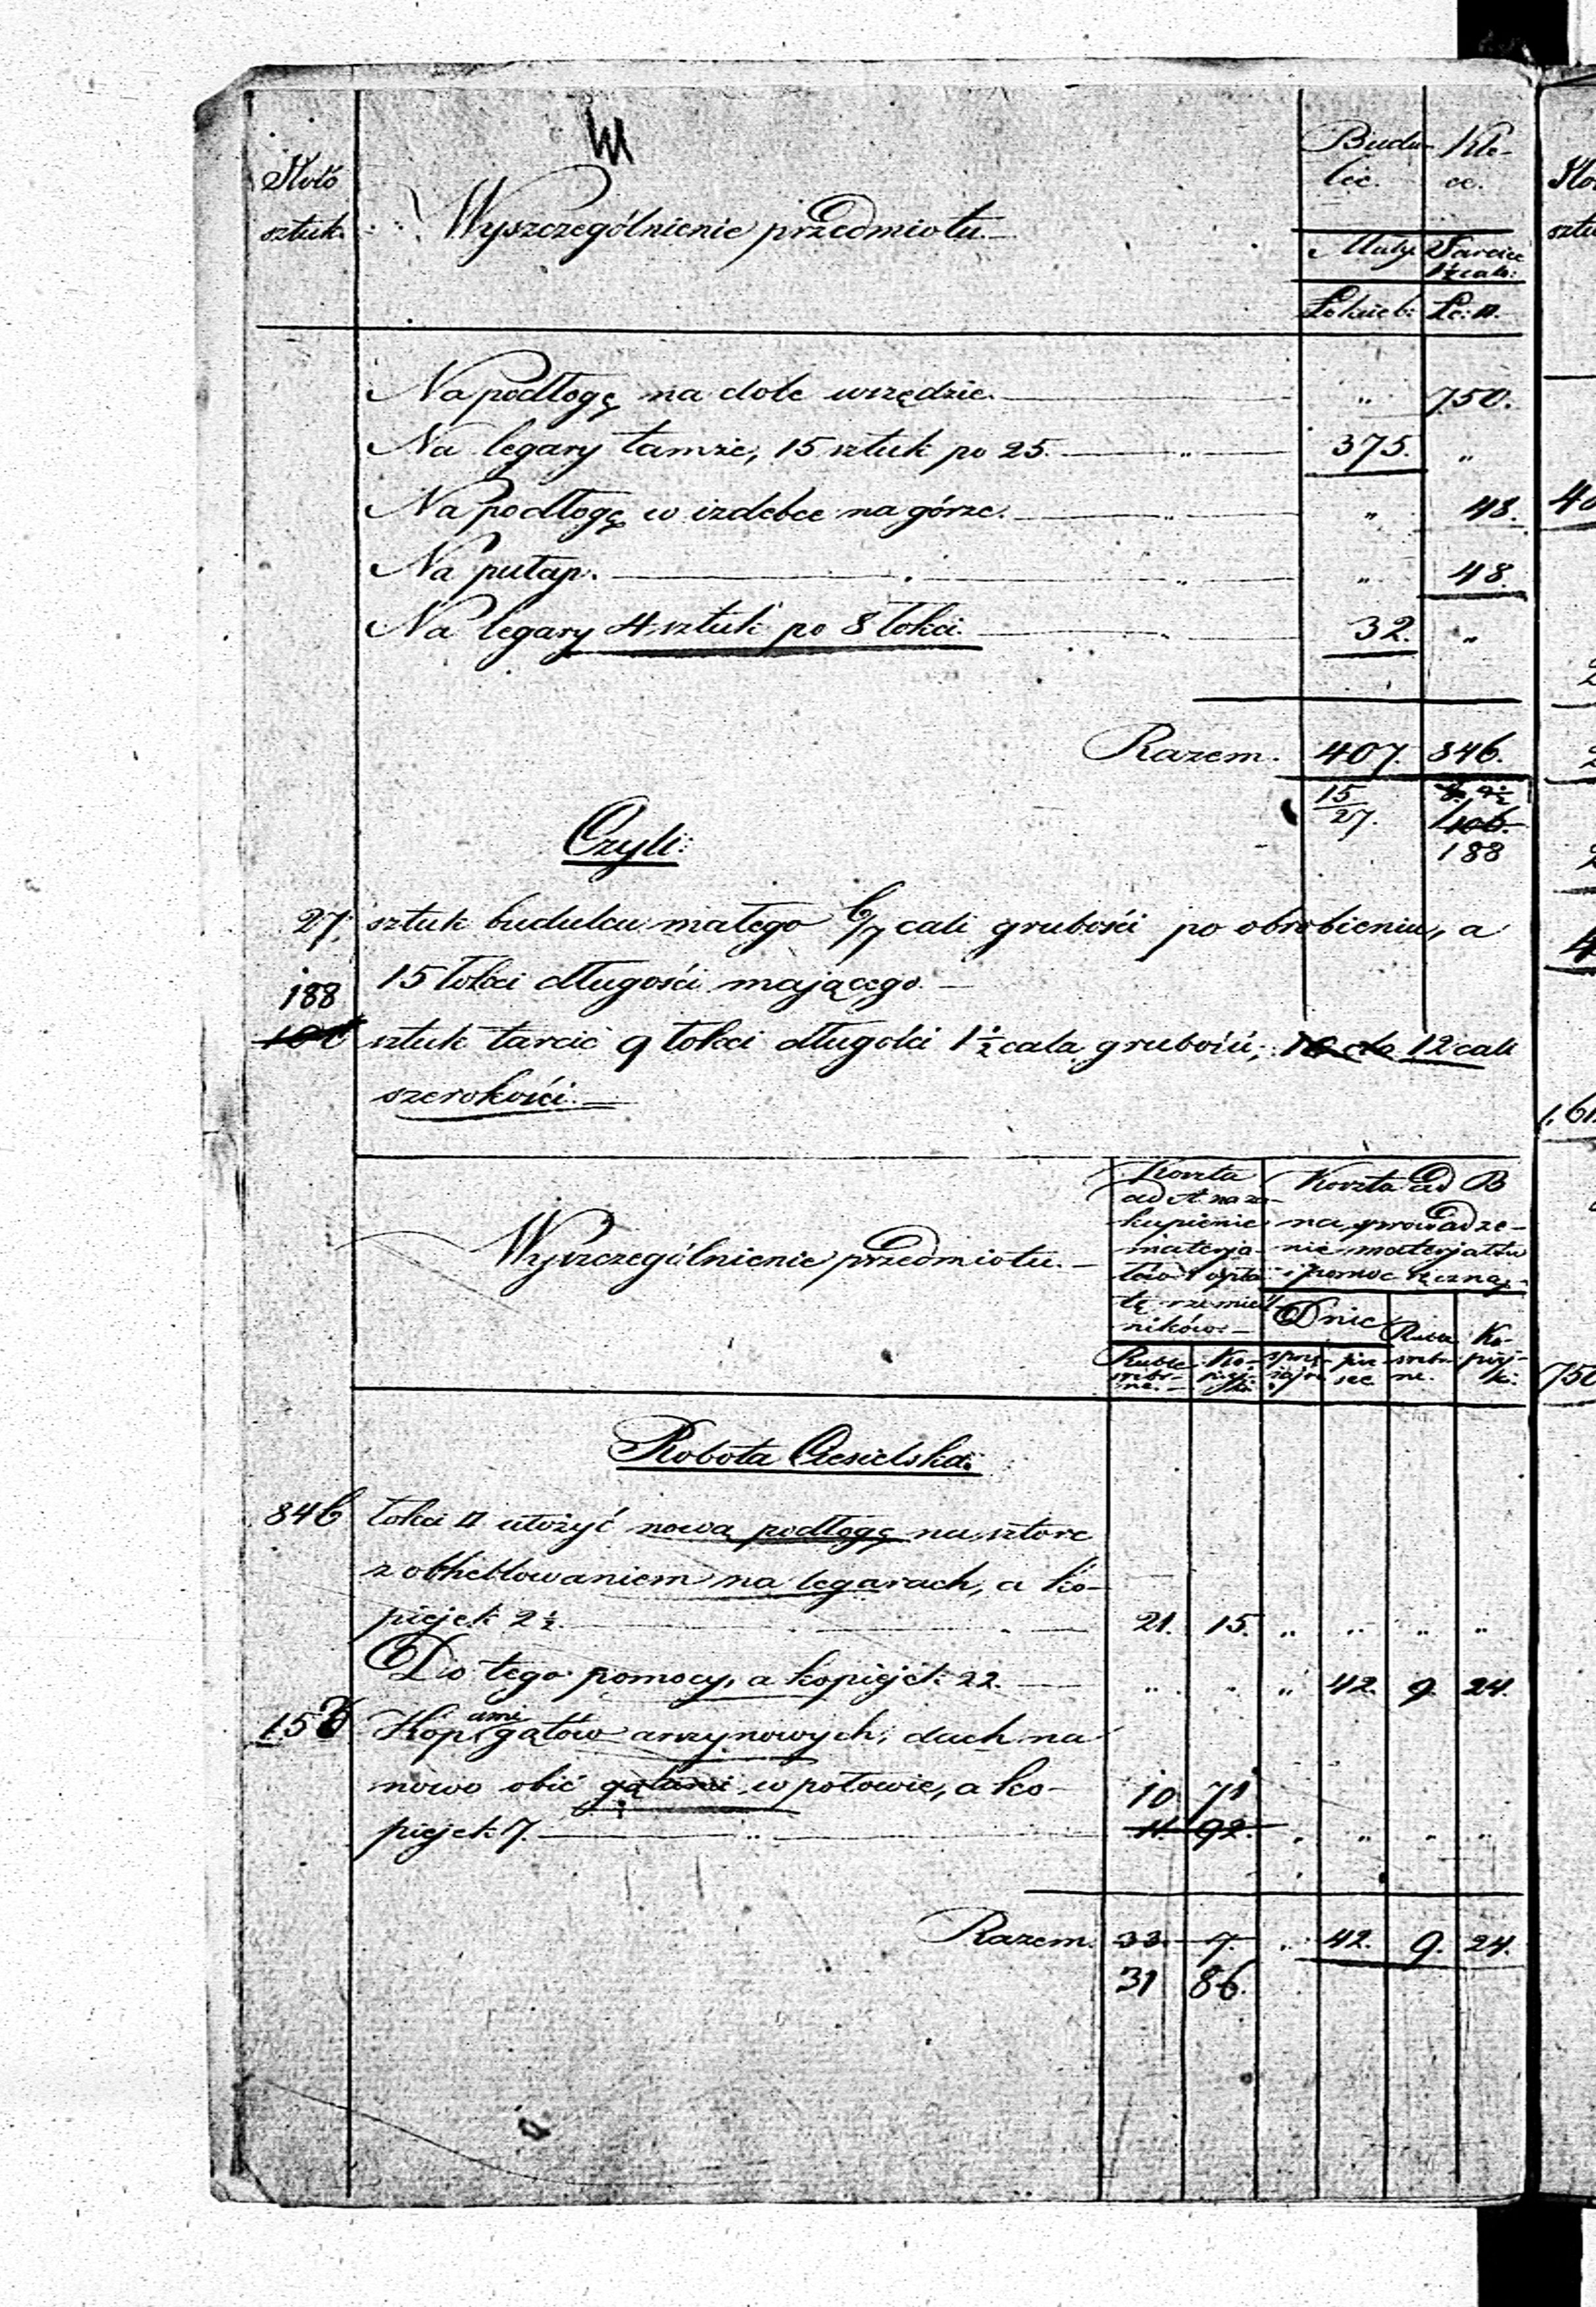 Ilość sztuk. Wyszczególnienie przedmiotu. Budulec. Kloce.
Mały Tarcice 1½ cala:
Łokieć: Łc: □.
Na podłogę na dole wszędzie. " 750.
Na legary tamże, 15 sztuk po 25. 375. "
Na podłogę w izdebce na górze. " 48.
Na pułap. " 48.
Na legary 4 sztuk po 8 łokci. 32. "
Razem. 407. 846.
15/27. 9/2
106.
188
Czyli:
27. sztuk budulcu małego 6/7 cali grubości po obrobieniu, a
15 łokci długości mającego.
188
106 sztuk tarcic 9 łokci długości 1½ cala grubości, 10 do 12 cali
szerokości.
Wyszczególnienie przedmiotu.
Koszta
ad A na za-
kupienie
materja-
łów i opła-
tę rzemieśl-
ników.
Koszta ad B
na prowadze-
nie materjałów
i pomoc ręczną.
Dnie
Ruble srebrne. Kopiejki sprzężajne piesze Ruble srebrne. Kopiejki.
Robota Ciesielska.
846 łokci □ ułożyć nową podłogę na sztorc
z obheblowaniem na legarach, a ko-
piejek 2½. 21. 15. " " " "
Do tego pomocy, a kopiejek 22. " " " 42. 9. 24.
153 Kop gątów arszynowych, dach na
ami
nowo obić gątami w połowie, a ko- 10 71
piejek 7. 11. 92. " " " "
Razem. 33. 7. " 42. 9. 24.
31 86.